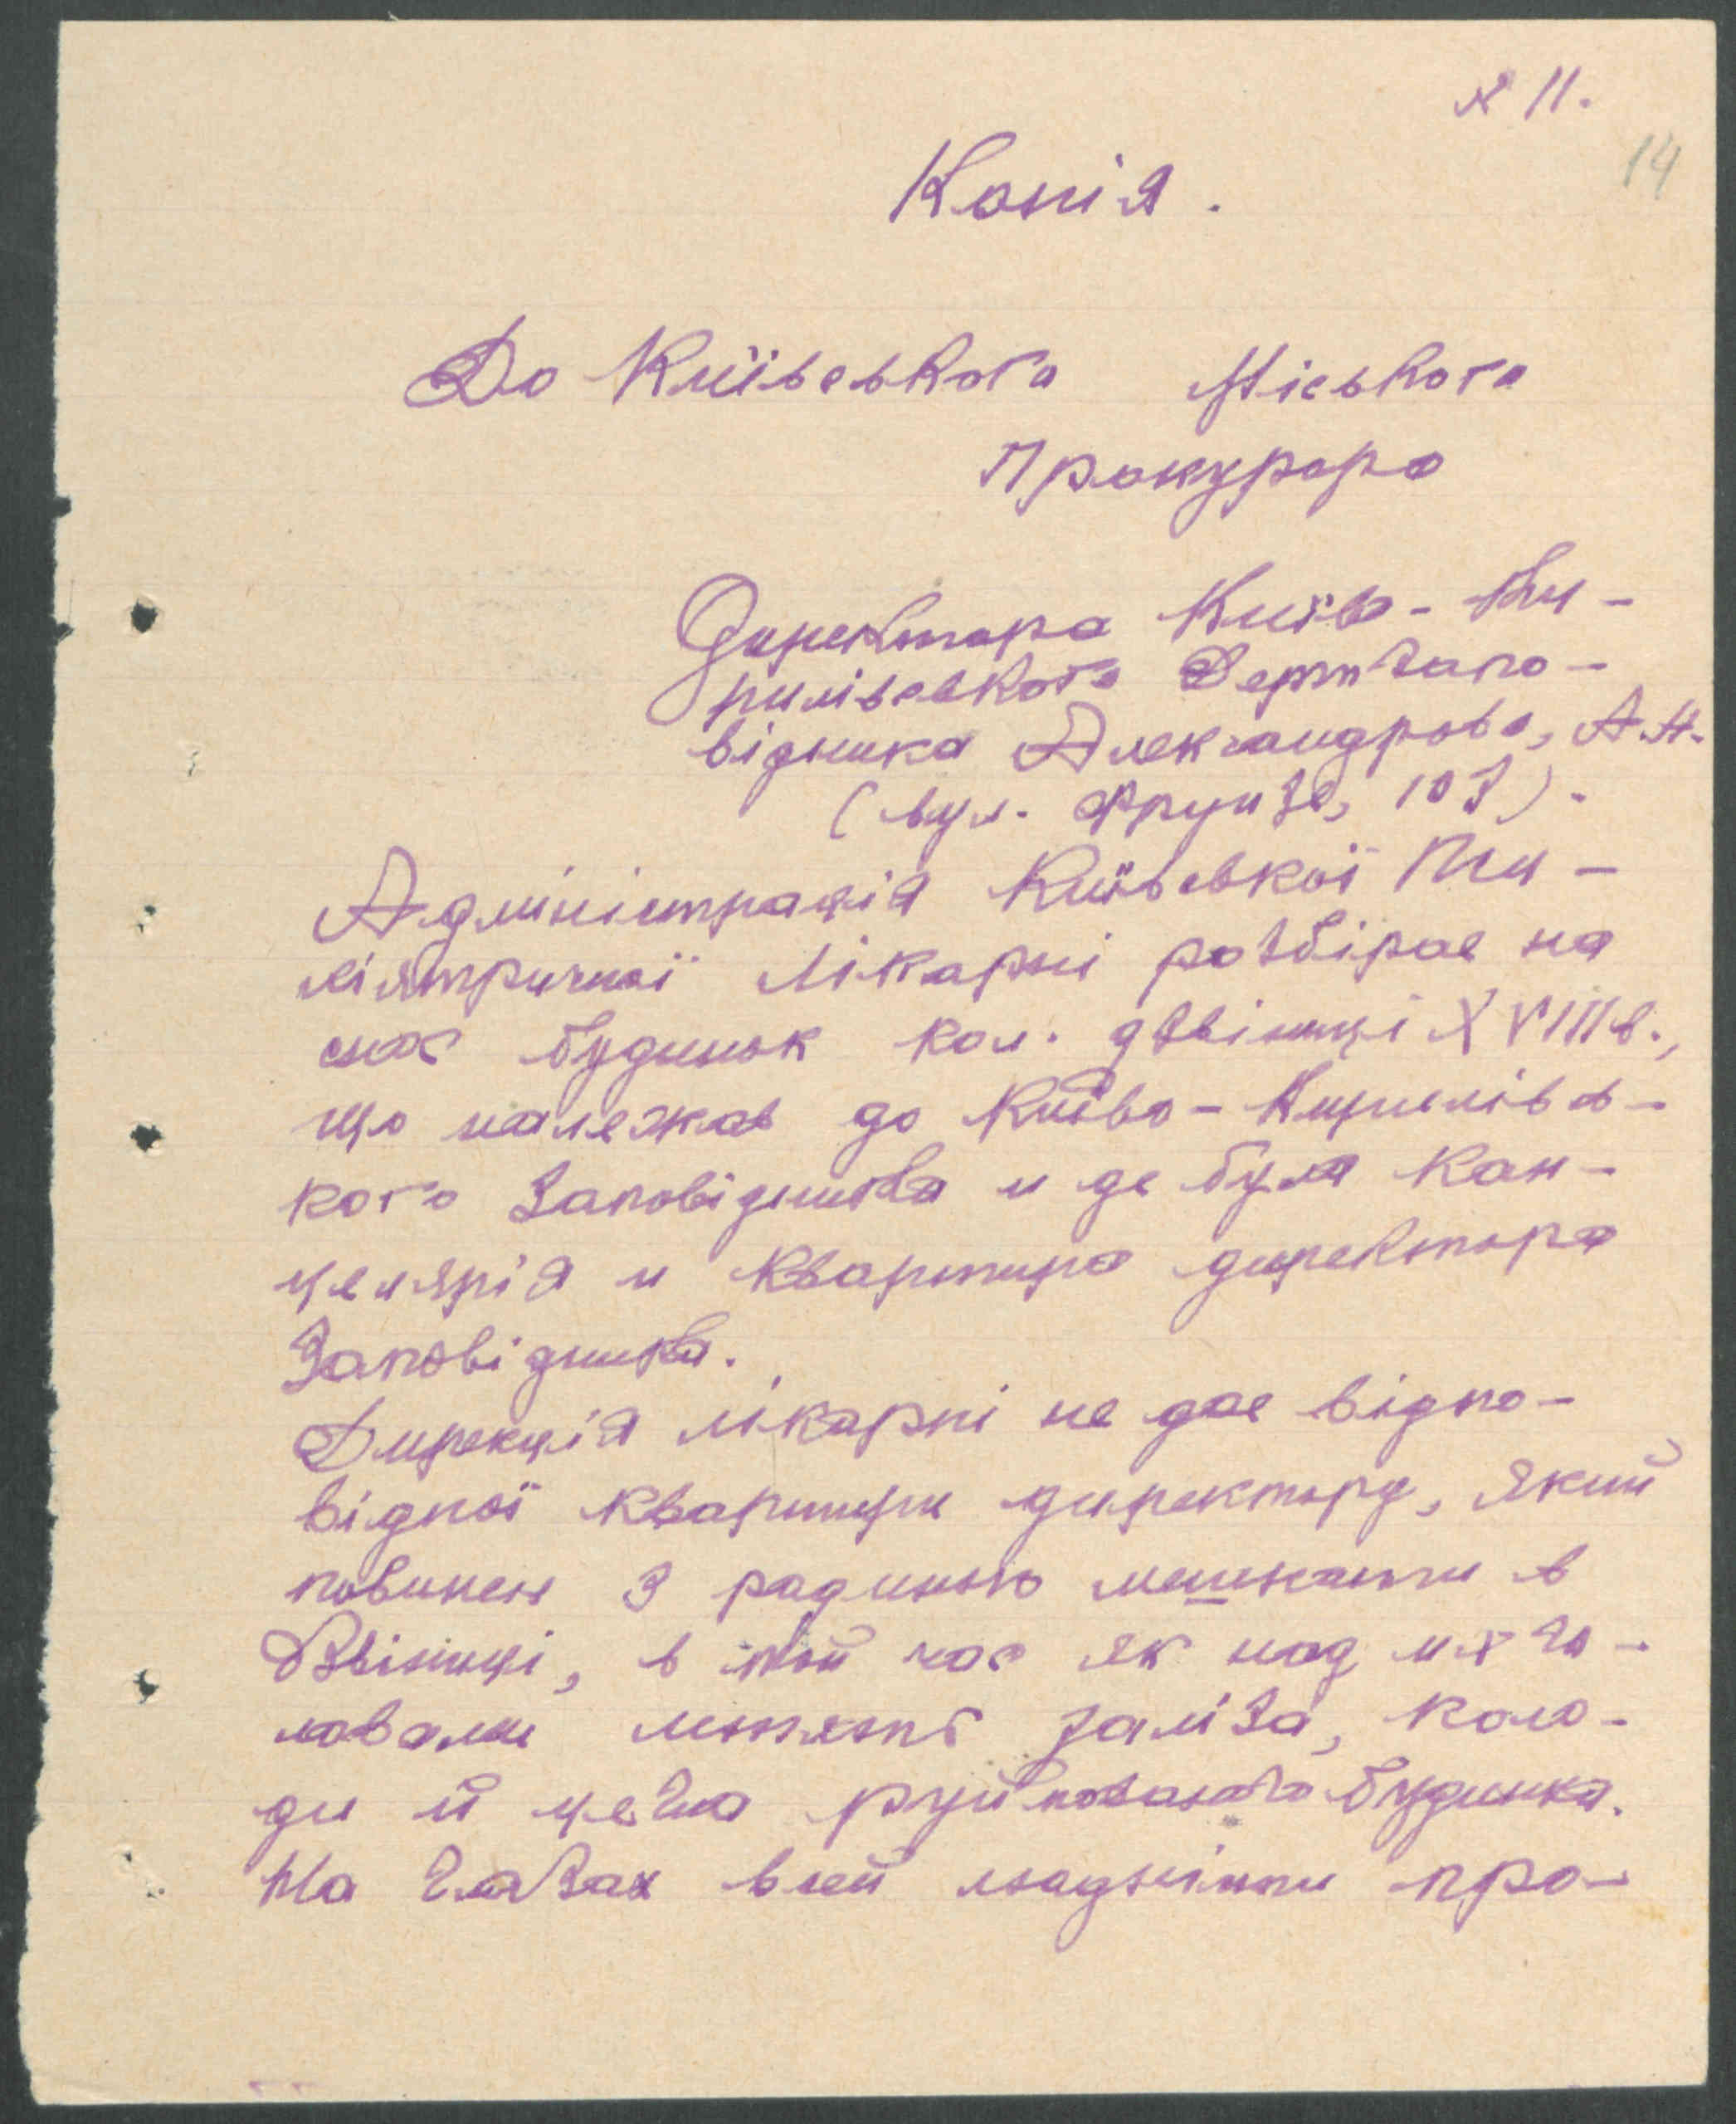 № 11.
14
Копія.
До Київського Міського
Прокурора
Директора Київ-Ки-
рилівського Держзапо-
відника Александрова, А.А.
(вул. Фрунзе, 103).
Адміністрація Київської Пси-
хіятричної Лікарні розбірає на
снос будинок кол. дзвіниці XVIII в.,
що належав до Київо-Кирилівсь-
кого Заповідника и де була Кан-
целярія и квартира директора
Заповідника.
Дирекція лікарні не дає відпо-
відної квартири директору, який
повинен з родиною мешкати в
Дзвіниці, в той час як над их го-
ловами летять заліза, коло-
ди й цегла руйнованого будинка.
На глазах всей про-